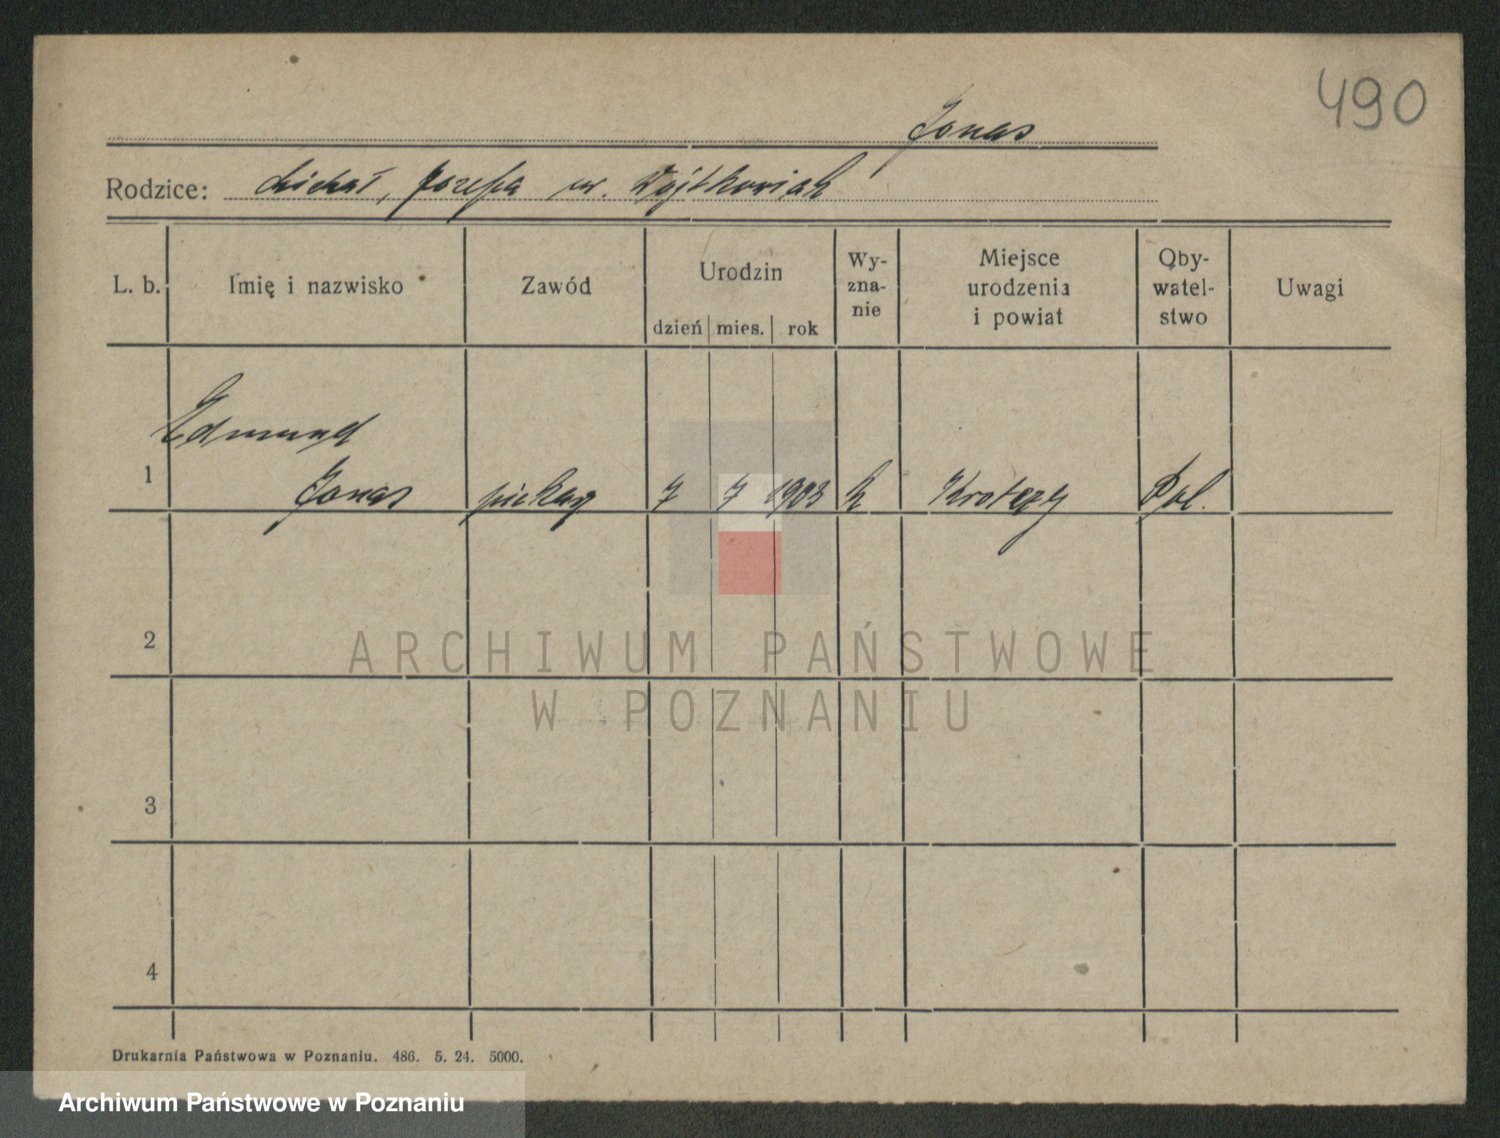 490
Jonas
Rodzice: Michał, Józefa ur. Wojtkowiak
L. b. Imię i nazwisko Zawód Urodzin dzień mies. rok Wy-zna-nie Miejsce urodzenia i powiat Oby-watel-stwo Uwagi
Edmund
1 Jonas piekarz 7 7 1903 k Pol.
2
3
4
Drukarnia Państwowa w Poznaniu. 486. 5. 24. 5000.
ARCHIWUM PAŃSTWOWE
W POZNANIU
Archiwum Państwowe w Poznaniu